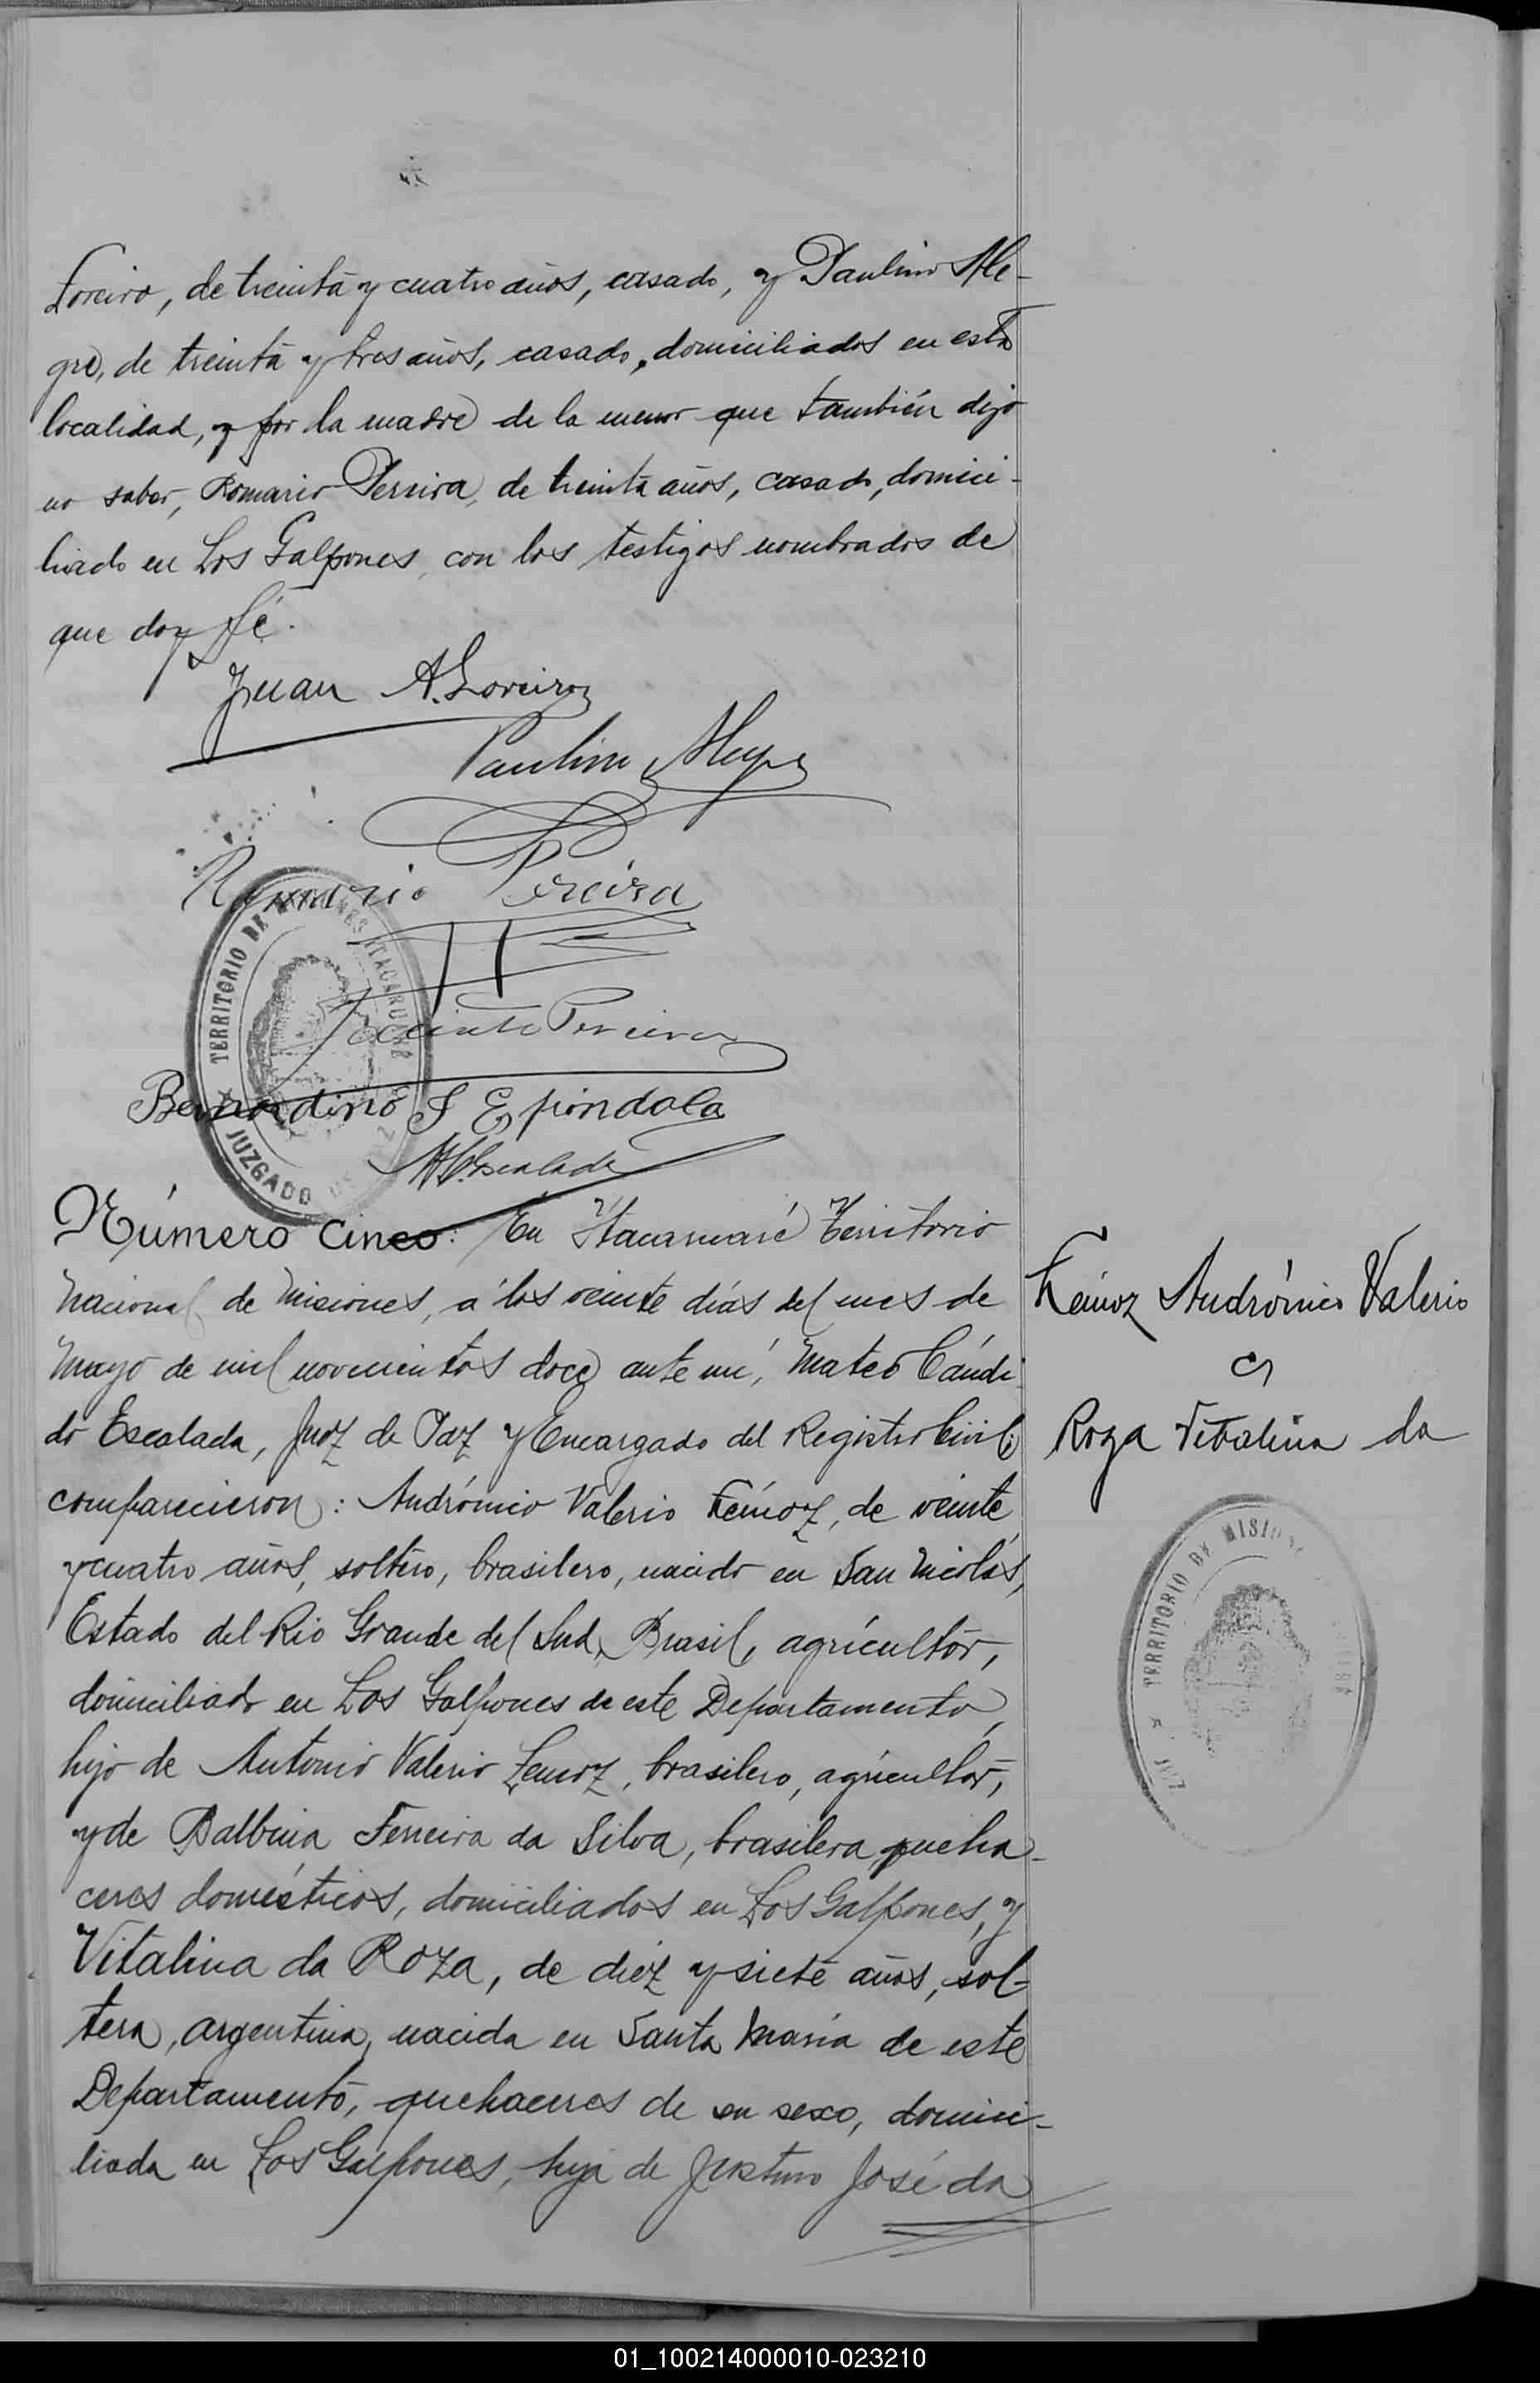 Loreiro, de treinta y cuatro años, casado, y Paulino Ale-
gre, de treinta y tres años, casado, domiciliados en esta
localidad, y por la madre de la menor que también dijo
no saber, Romario Pereira, de treinta años, casado, domici-
liado en Los Galpones, con los testigos nombrados de
que doy fé.
Juan A. Loreiro
Paulino Alegre
Romario Pereira
Jacinto Pereira
Bernardino S Espindola
M. C. Escalada
TERRITORIO DE MISIONES ITACARUARÉ
JUZGADO DE PAZ
Número cinco: En Itacaruaré Territorio
Nacional de Misiones, a los veinte días del mes de
Mayo de mil novecientos doce ante mí, Mateo Cándi-
do Escalada, Juez de Paz y Encargado del Registro Civil,
comparecieron: Andrómico Valerio Lemoz, de veinte
y cuatro años, soltero, brasilero, nacido en San Nicolás,
Estado del Rio Grande del Sud, Brasil, agricultor,
domiciliado en Los Galpones de este Departamento,
hijo de Antonio Valerio Lemoz, brasilero, agricultor,
y de Balbina Ferreira da Silva, brasilera, queha-
ceres domésticos, domiciliados en Los Galpones, y
Vitalina da Roza, de diez y siete años, sol-
tera, argentina, nacida en Santa María de este
Departamento, quehaceres de su sexo, domici-
liada en Los Galpones, hija de Justino José da
Lemoz Andrómico Valerio
c/
Roza Vitalina da
TERRITORIO DE MISIONES
01_100214000010-023210